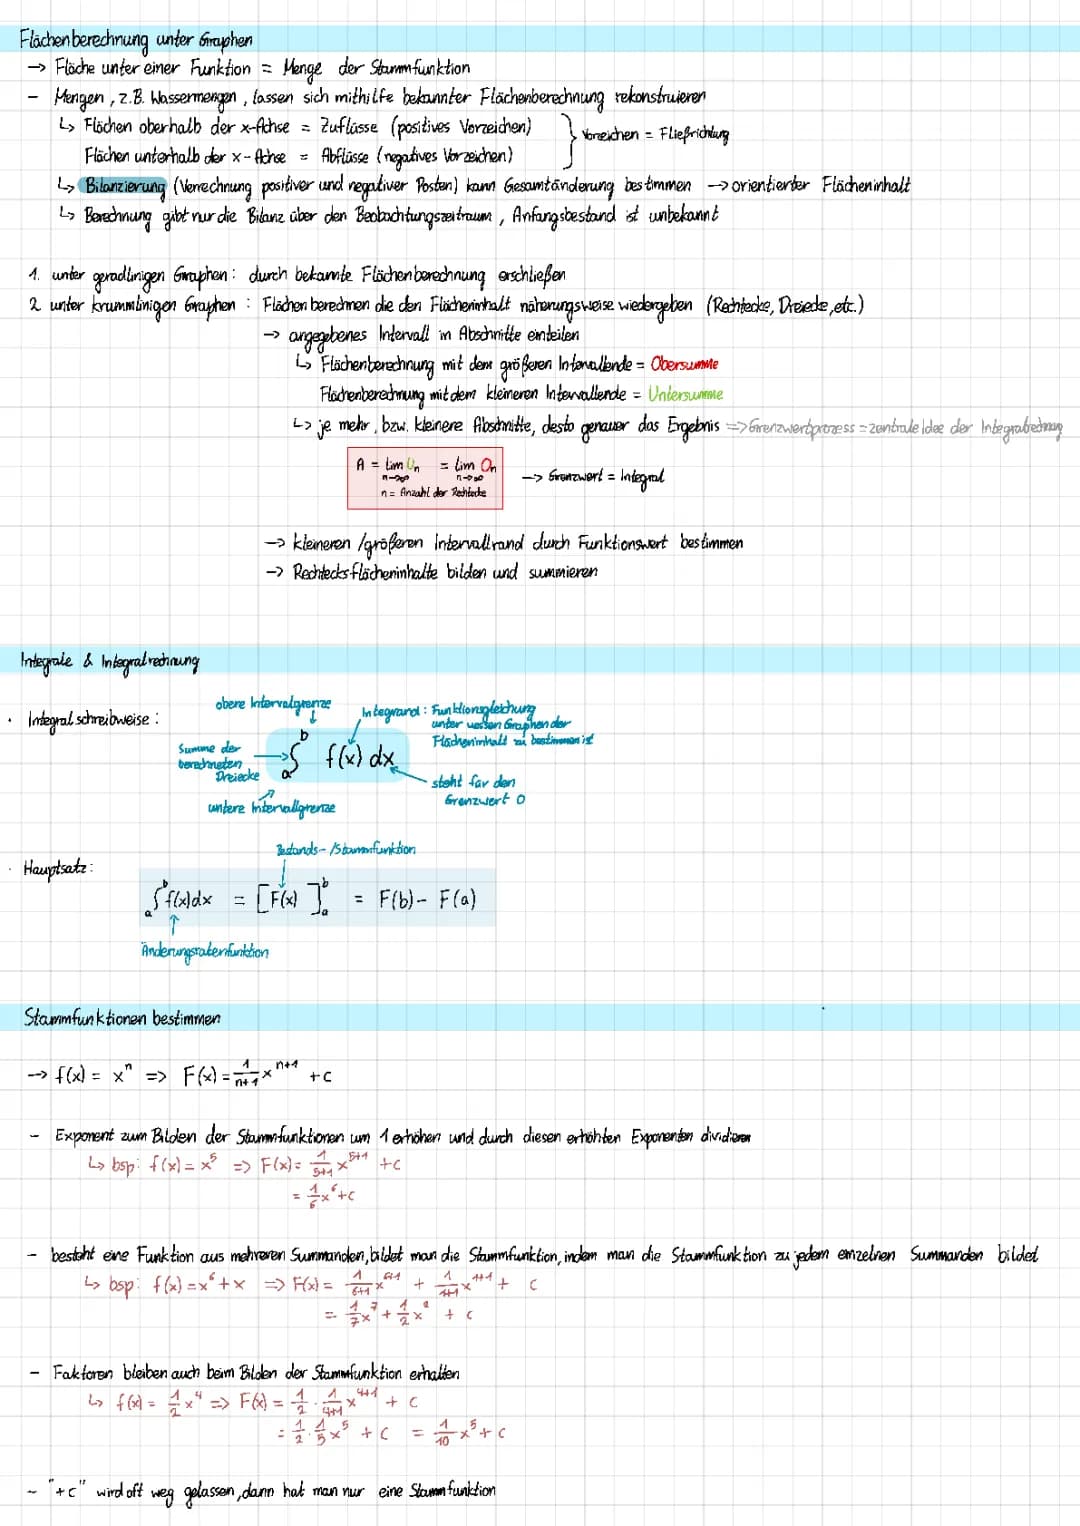 Flächenberechnung unter Graphen
→ Fläche unter einer Funktion = Menge der Stammfunktion
- Mengen, z.B. Wassermengen, lassen sich mithilfe bekannter Flächenberechnung rekonstruieren
↳ Flächen oberhalb der x-Achse = Zuflüsse (positives Vorzeichen)
Flächen unterhalb der x-Achse = Abflüsse (negatives Vorzeichen)
} Vorzeichen = Fließrichtung
↳ Bilanzierung (Verrechnung positiver und negativer Posten) kann Gesamtänderung bestimmen → orientierter Flächeninhalt
↳ Berechnung gibt nur die Bilanz über den Beobachtungszeitraum, Anfangsbestand ist unbekannt
1. unter geradlinigen Graphen: durch bekannte Flächenberechnung erschließen
2 unter krummlinigen Graphen: Flächen berechnen die den Flächeninhalt näherungsweise wiedergeben (Rechtecke, Dreiecke, etc.)
→ angegebenes Intervall in Abschnitte einteilen
↳ Flächenberechnung mit dem größeren Intervallende = Obersumme
Flächenberechnung mit dem kleineren Intervallende = Untersumme
↳ je mehr, bzw. kleinere Abschnitte, desto genauer das Ergebnis => Grenzwertprozess = zentrale Idee der Integralrechnung
A = lim Uₙ = lim Oₙ
n→∞ n→∞
n = Anzahl der Rechtecke
→ Grenzwert = Integral
→ kleineren /größeren Intervallrand durch Funktionswert bestimmen
→ Rechtecksflächeninhalte bilden und summieren
Integrale & Integralrechnung
· Integralschreibweise:
obere Intervalgrenze
Integrand: Funktionsgleichung
unter wessen Graphen der
Flächeninhalt zu bestimmen ist
Summe der
berechneten
Dreiecke
∫ₐᵇ f(x) dx
steht für den
Grenzwert 0
untere Intervallgrenze
Bestands-/Stammfunktion
· Hauptsatz:
∫ₐᵇ f(x)dx = [F(x)]ₐᵇ = F(b) - F(a)
Änderungsratenfunktion
Stammfunktionen bestimmen
→ f(x) = xⁿ => F(x) = 1/(n+1) xⁿ⁺¹ + c
- Exponent zum Bilden der Stammfunktionen um 1 erhöhen und durch diesen erhöhten Exponenten dividieren
↳ bsp: f(x) = x⁵ => F(x) = 1/(5+1) x⁵⁺¹ + c
= 1/6 x⁶ + c
- besteht eine Funktion aus mehreren Summanden, bildet man die Stammfunktion, indem man die Stammfunktion zu jedem einzelnen Summanden bildet
↳ bsp: f(x) = x⁶ + x => F(x) = 1/(6+1) x⁶⁺¹ + 1/(1+1) x¹⁺¹ + c
= 1/7 x⁷ + 1/2 x² + c
- Faktoren bleiben auch beim Bilden der Stammfunktion erhalten
↳ f(x) = 1/2 x⁴ => F(x) = 1/2 · 1/(4+1) x⁴⁺¹ + c
= 1/2 · 1/5 x⁵ + c = 1/10 x⁵ + c
- "+c" wird oft weg gelassen, dann hat man nur eine Stammfunktion